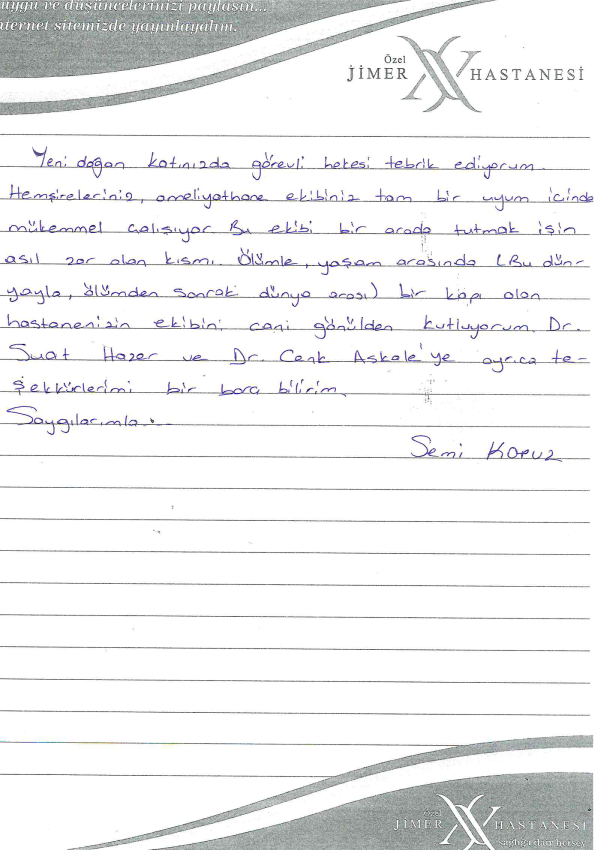 uygu ve düşüncelerinizi paylaşın...
nternet sitemizde yayınlayalım.
Özel
JİMER HASTANESİ
Yeni doğan katınızda görevli hekesi tebrik ediyorum.
Hemşireleriniz, ameliyathane ekibiniz tam bir uyum icinde
mükemmel calışıyor Bu ekibi bir arada tutmak işin
asıl zor olan kısmı. Ölümle, yaşam arasında (Bu dün-
yayla, ölümden sonraki dünya arası) bir kapı olan
hastanenizin ekibini cani gönülden kutluyorum. Dr.
Suat Hazer ve Dr. Cenk Askale'ye ayrıca te-
şekkürlerimi bir borç bilirim.
Saygılarımla...
Semi KOPUZ
özel
JİMER HASTANESİ
sağlığa dair herşey